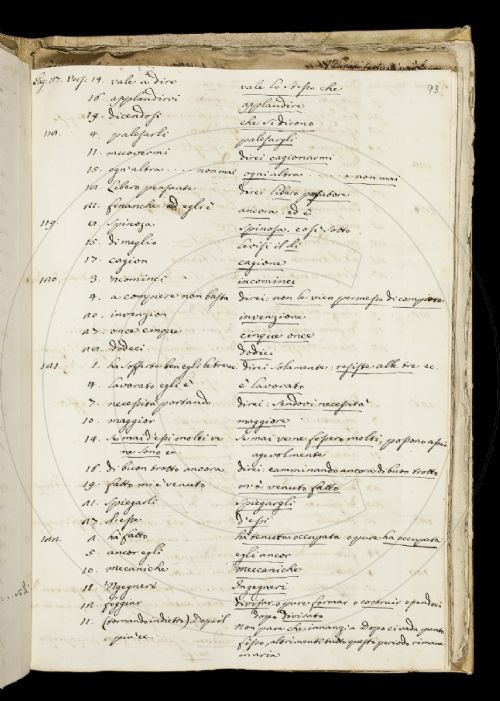 93
Pag. 117. Vers. 14. vale a dire vale lo stesso che
16. applaudirvi applaudire
19. dicendosi che si dicono
118. 4. palesarli palesargli
11. muovermi direi cagionarmi
15. ogni altra . . . non mai ogni altra . . . e non mai
18. Libero pensante direi libero
22. finanche ed egli è ancora ed è
119. 2. Spinoza Spinosa. e così sotto
15. di meglio
17. cagion cagione
120. 3. 'ncominci incominci
4. a compiere non basta direi: non le vien permesso di compiere
20. invenzion invenzione
27. once cinque cinque once
28. dodeci dodici
121. 1. ha sofferto ben egli le tre ec. direi solamente: resiste alle tre ec.
4. lavorato egli è è lavorato
7. necessità portando direi: sendovi necessità
10. maggior maggiore
14. Se mai d'essi molti ve Se mai ve ne fossero molti, possono assai
ne sono ec. agevolmente
16. di buon trotto ancora direi: camminando ancora di buon trotto
19. fatto mi è venuto m'è venuto fatto
21. spiegarli spiegargli
27. d'esse d'essi
122. 2. ha fatto ha tenuta occupata o pure ha occupata
5. ancor egli egli ancor
10. mecaniche meccaniche
11. 'Ngegneri Ingegneri
12. foggiar divisar, o pure formar o costruir
11. (tornando indietro) dopo il dopo divisato
più ec. Non pare che innanzi a dopo ci vada punto
fisso, altrimenti tutto questo periodo rimane
in aria